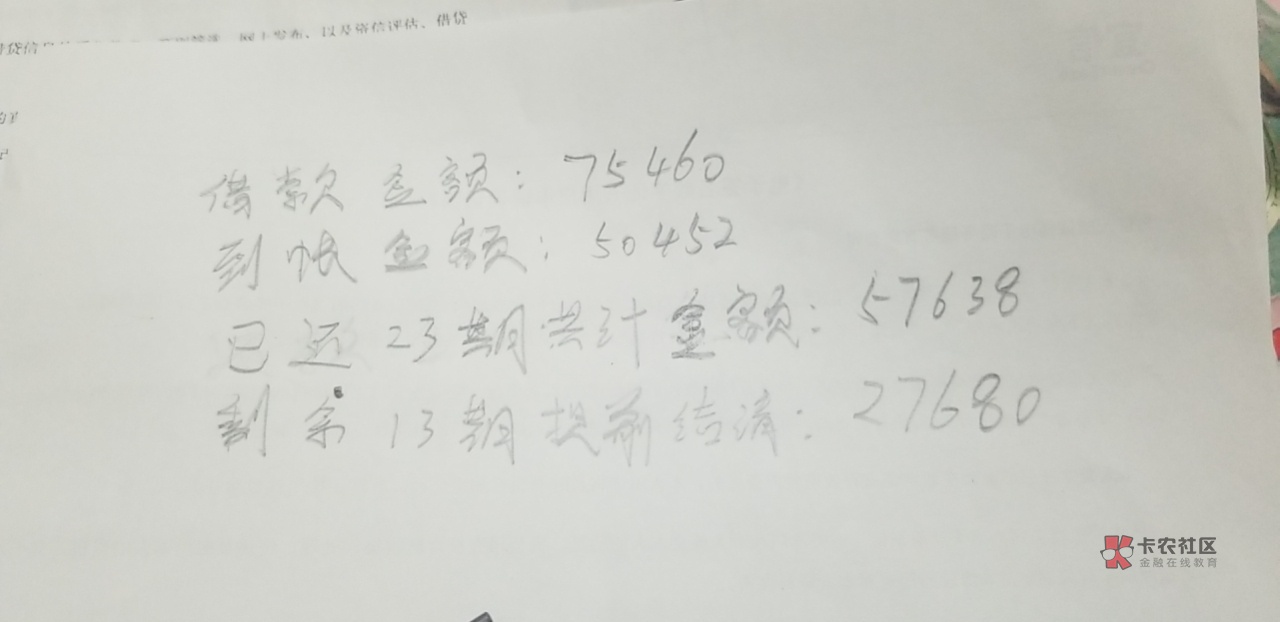 网上发布、以及资信评估、借贷
借款金额：75460
到帐金额：50452
已还23期共计金额：57638
剩余13期提前结清：27680
卡农社区
金融在线教育